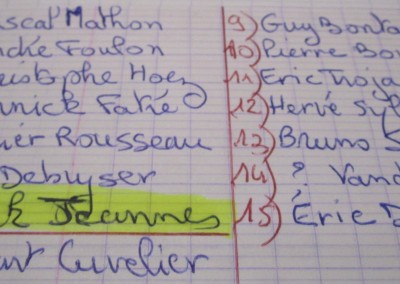 ascal Mathon
ndré Foulon
ristophe Hoez
nnick Fatré
vier Rousseau
Debuyser
k Jeannes
ent Cuvelier
9) Guy Bonta
10) Pierre Bor
11) Eric Troya
12) Hervé Syl
13) Bruno S
14) ? Vand
15) Éric D